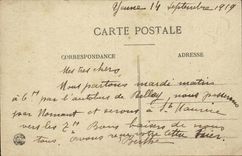 Yenne 14 septembre 1919
CARTE POSTALE
CORRESPONDANCE
ADRESSE
Mes très chers
Nous partons mardi matin
à 6h par l'autobus de Belley, nous passerons
par et serons à St Maurice
vers les 7h Bons baisers de nous
tous. avons reçu votre lettre hier.
Berthe